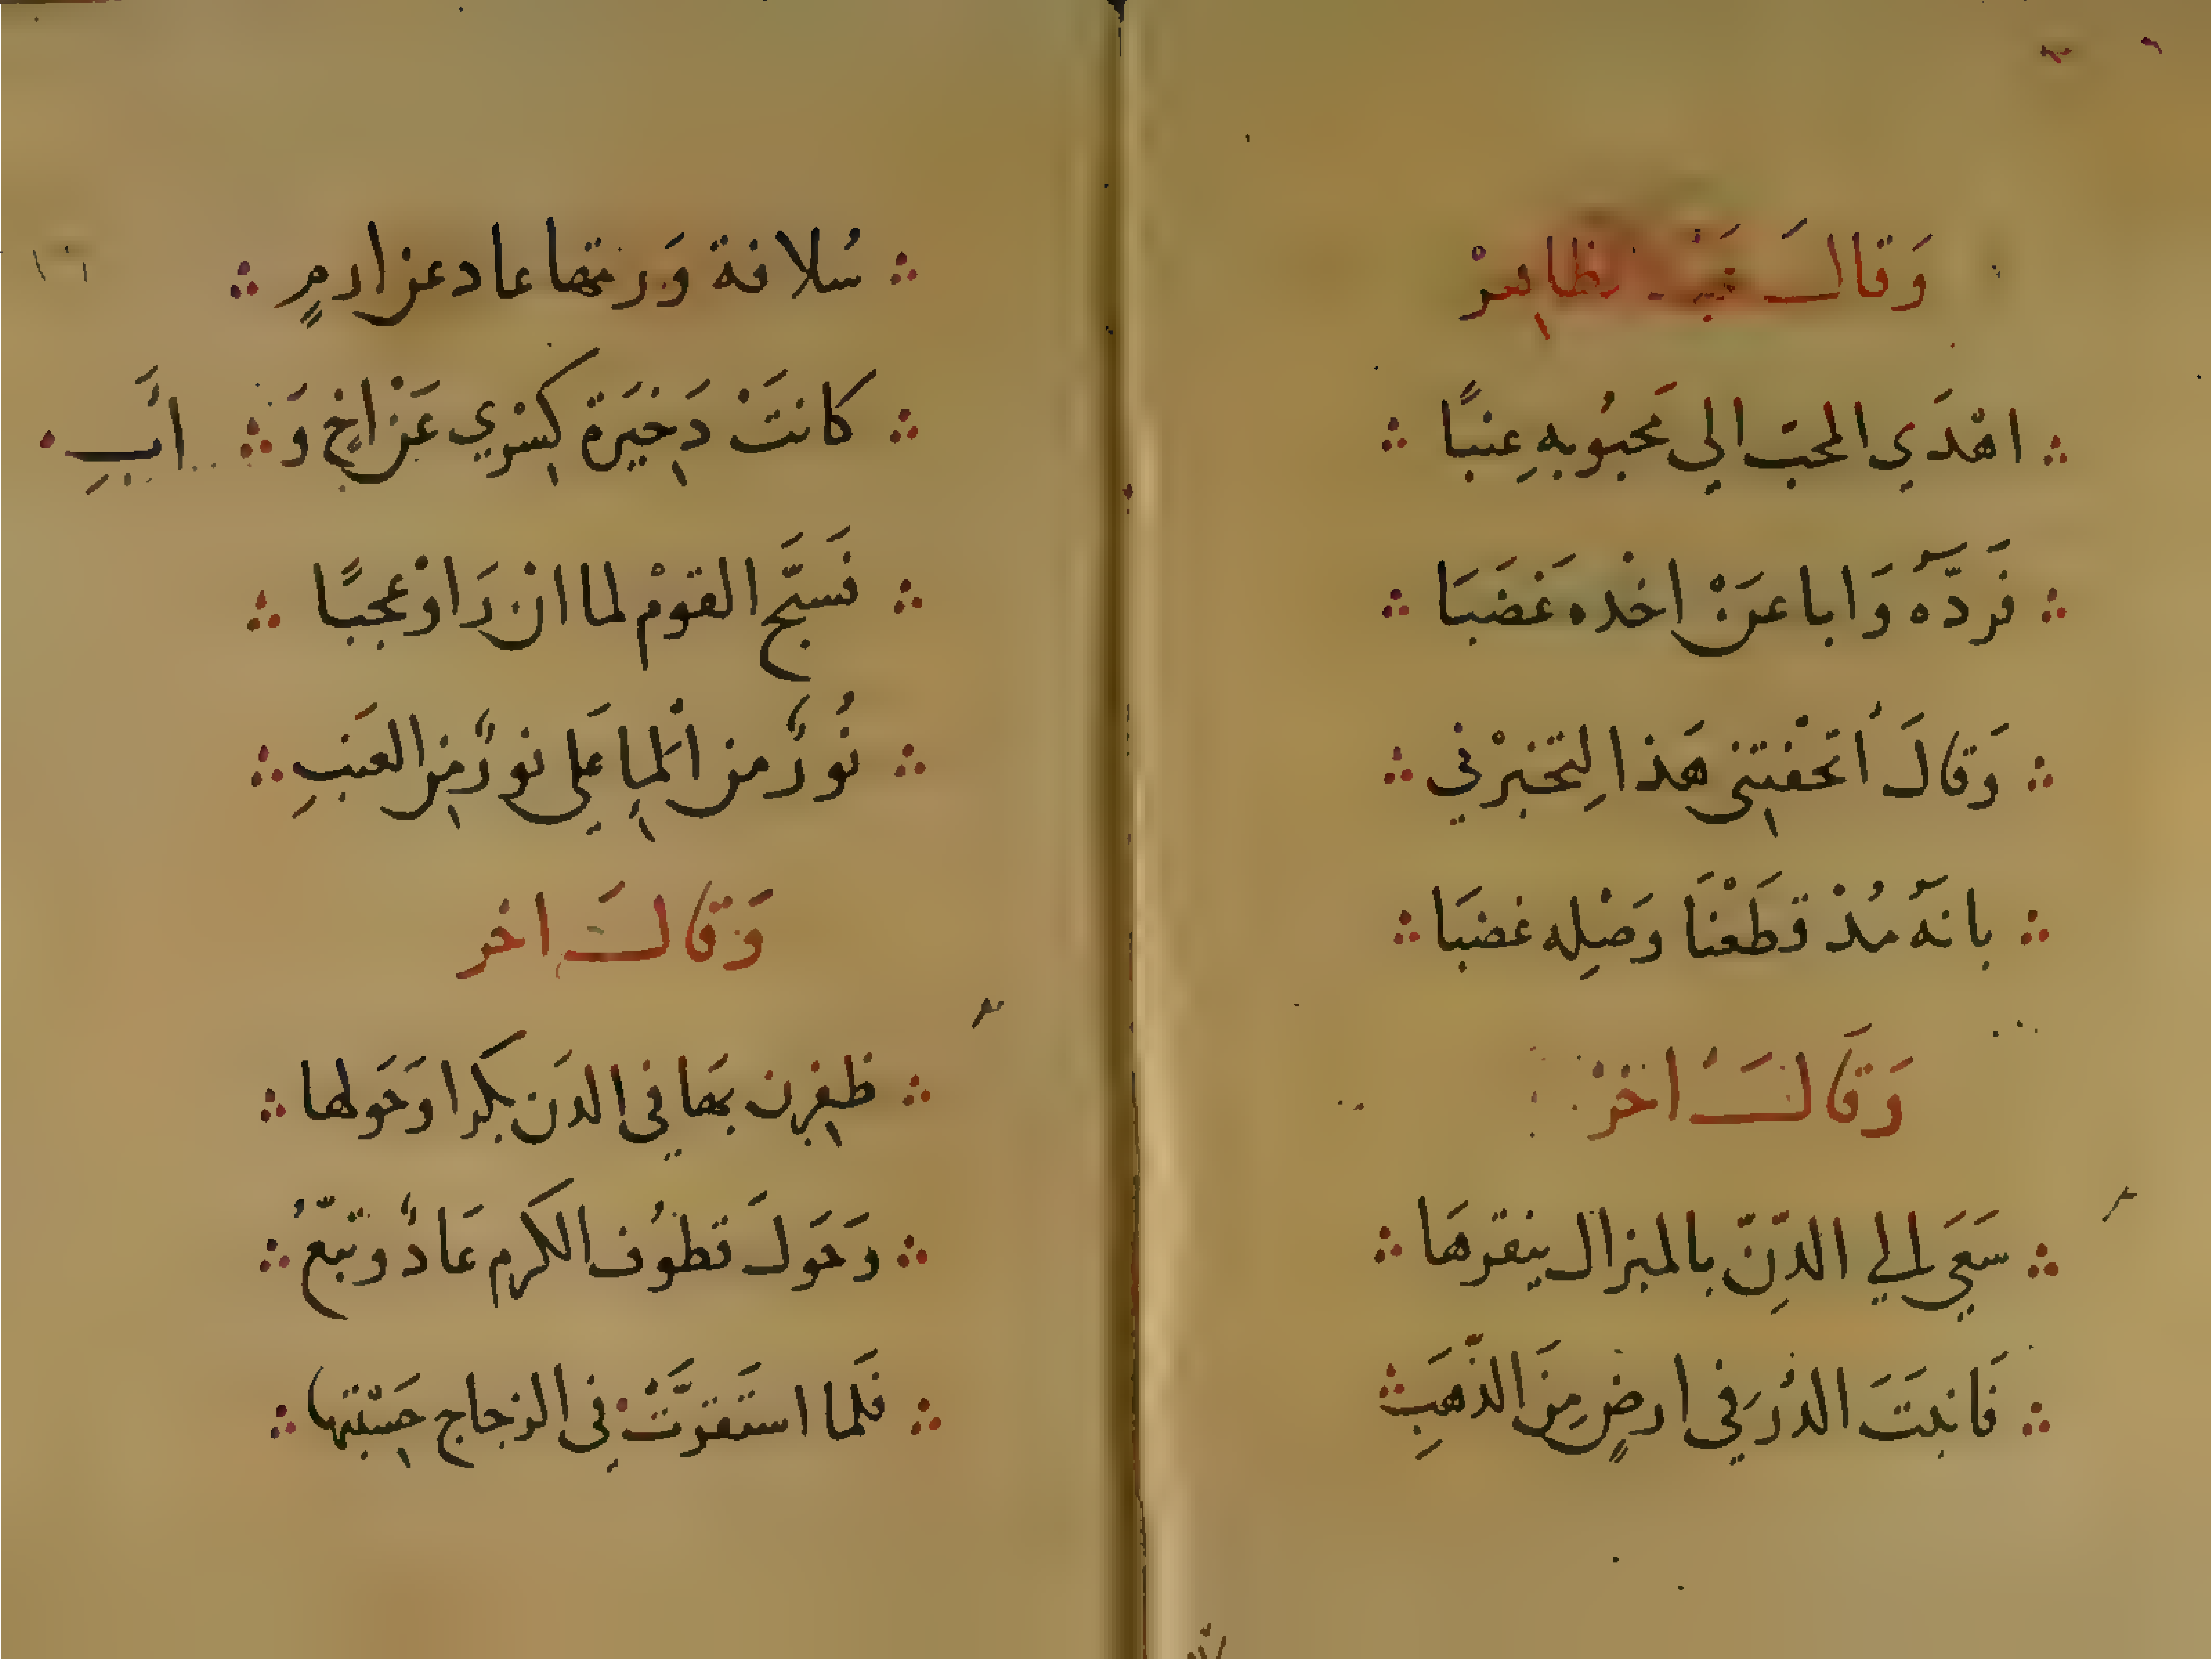 وَقَالَ غَيْره نظايرْ
اهْدَي المحبّ الي محَبُوبهِ عِنبًا
فَردّهُ وَابا عَنْ اخذه غَضَبَا
وَقالَ أتحَفْتِني هَذا لِتخبرْني
بانهُ مُذْ قطَعْنَا وَصْلِه غضبَا
وَقَالَ اخرْ
سَعَي الي الدّنِّ بالمبزال ينقرهَا
فَانبتَ الدُرَ في ارضٍ مِنَ الذّهَبِ
سُلافة وَرثتها عاد عن ارمٍ
كانَتْ دَخِيَرة كِسْرِي عَنْ اخٍ وَ أَبِ
فَسَبَّح القومْ لما ان رَاوْ عجبًا
نُورٌ من الْمَاءِ عَلي نورٌ مِن العنَبِ
وَقَالَ اخر
ظفِرن بهَا في الدَن بكرا وَحَولها
وَحَولَ قطوُف الكرم عَادٌ وتبّعُ
فَلما استَقرَّتْ في الزجاج حَسِبّتها